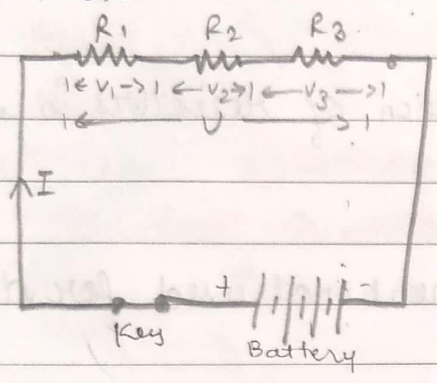 R1 R2 R3
V1 V2 V3
V
I
+ -
Key
Battery